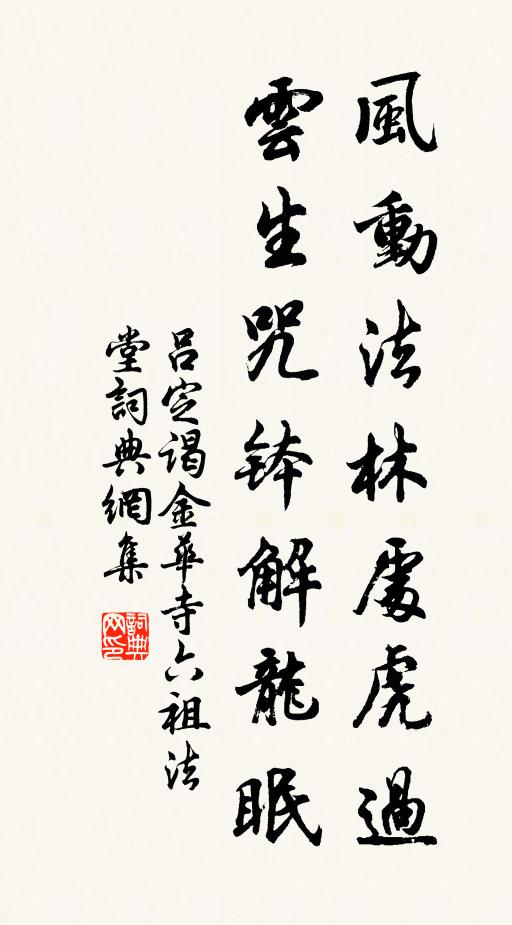 風動法林處虎過
雲生咒鉢解龍眠
呂定謁金華寺六祖法
堂詞典網集
詞典
网印